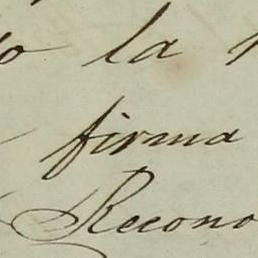 la
firma
Recono